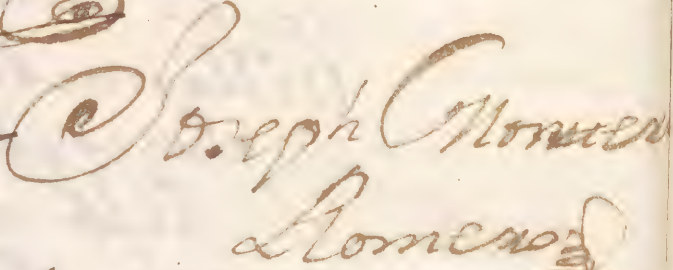 Joseph Montero
Romero